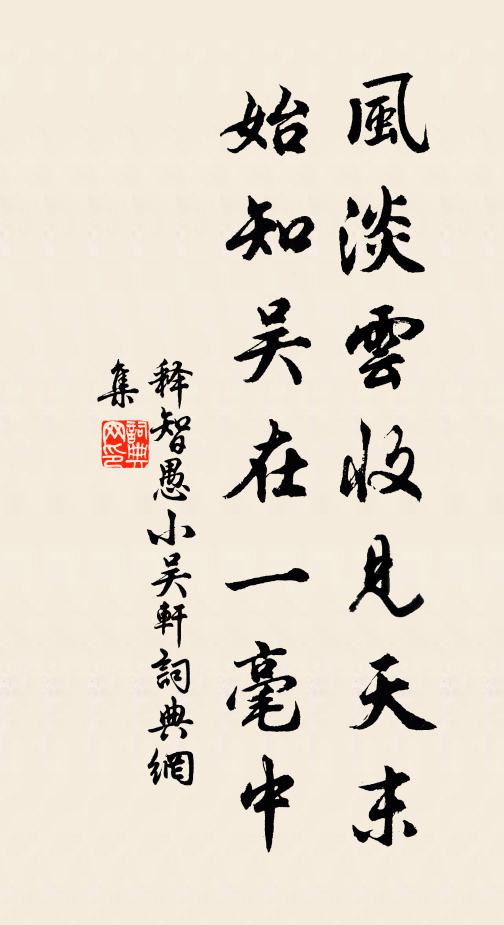 風淡雲收見天末
始知吴在一毫中
释智愚小吴軒詞典網
集
詞典
网印